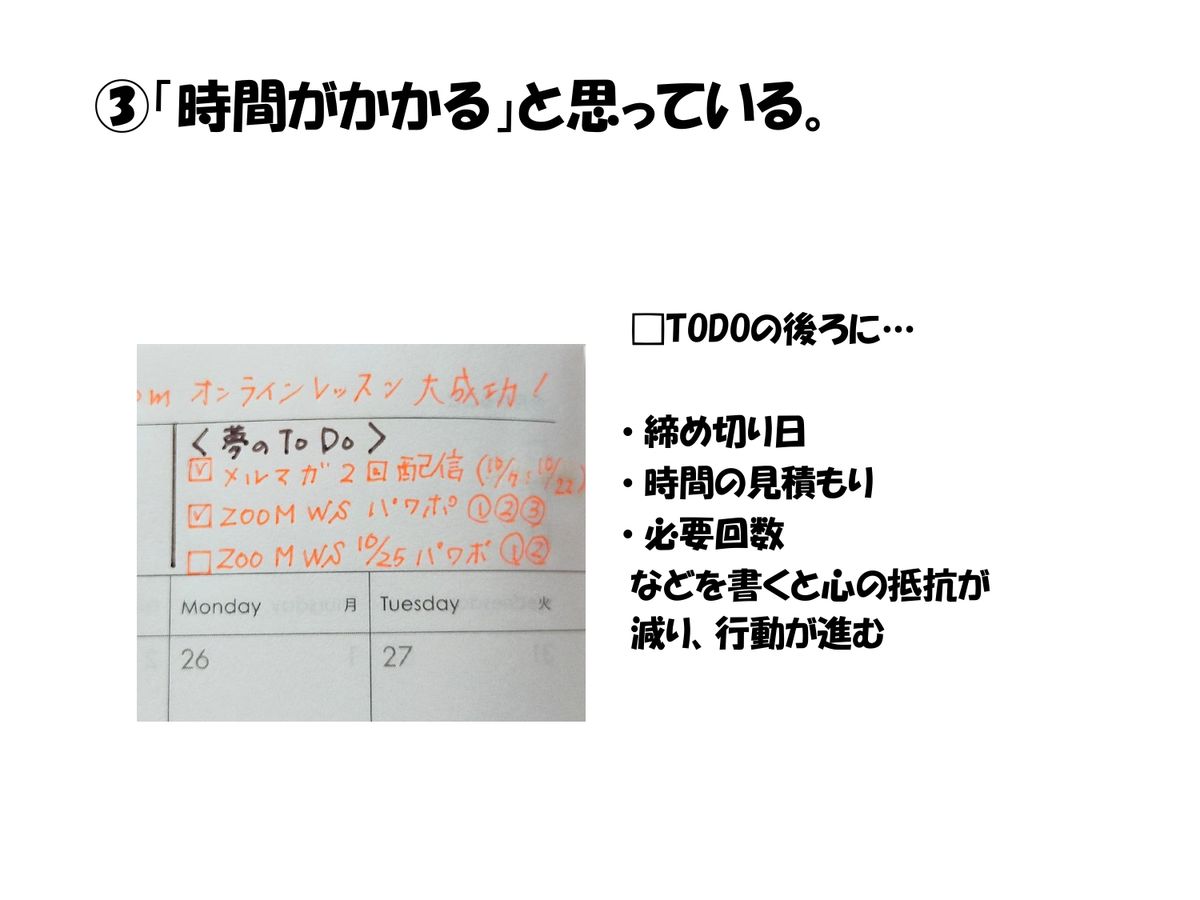 ③「時間がかかる」と思っている。
オンラインレッスン 大成功！
＜夢のToDo＞
☑メルマガ2回配信(10/7:10/22)
☑ZOOM WS パワポ①②③
□ZOOM WS 10/25 パワポ①②
Monday 月 Tuesday 火
26 27
□TODOの後ろに…
・締め切り日
・時間の見積もり
・必要回数
などを書くと心の抵抗が
減り、行動が進む